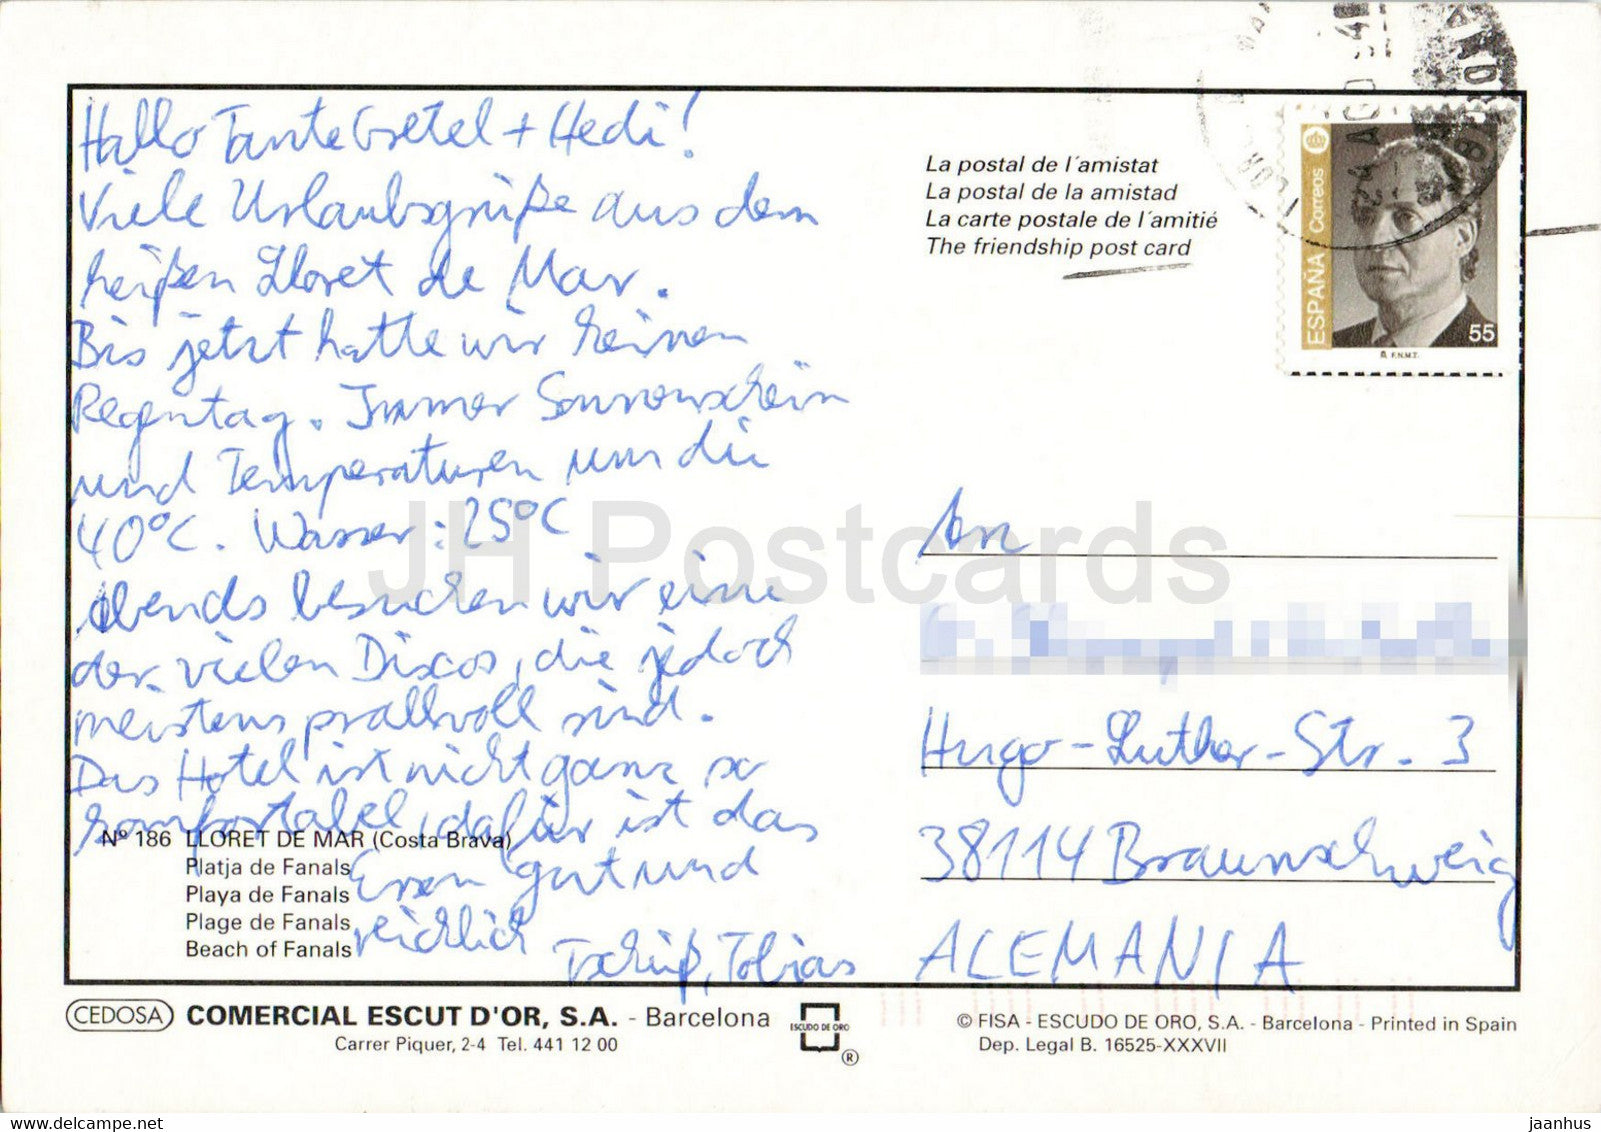 Hallo Tante Gretel + Hedi!
Viele Urlaubsgrüße aus dem
heißen Lloret de Mar.
Bis jetzt hatte wir keinen
Regentag. Immer Sonnenschein
und Temperaturen um die
40°C. Wasser: 25°C
Abends besuchen wir eine
der vielen Discos, die jedoch
meistens prallvoll sind.
Das Hotel ist nicht ganz so
komfortabel, dafür ist das
Essen gut und
reichlich
Tschüß, Tobias
Nº 186 LLORET DE MAR (Costa Brava)
Platja de Fanals
Playa de Fanals
Plage de Fanals
Beach of Fanals
La postal de l´amistat
La postal de la amistad
La carte postale de l´amitié
The friendship post card
ESPAÑA Correos
55
F.N.M.T.
An
Hugo-Luther-Str. 3
38114 Braunschweig
ALEMANIA
CEDOSA COMERCIAL ESCUT D'OR, S.A. - Barcelona
Carrer Piquer, 2-4 Tel. 441 12 00
ESCUDO DE ORO
®
© FISA - ESCUDO DE ORO, S.A. - Barcelona - Printed in Spain
Dep. Legal B. 16525-XXXVII
JH Postcards
www.delcampe.net
jaanhus